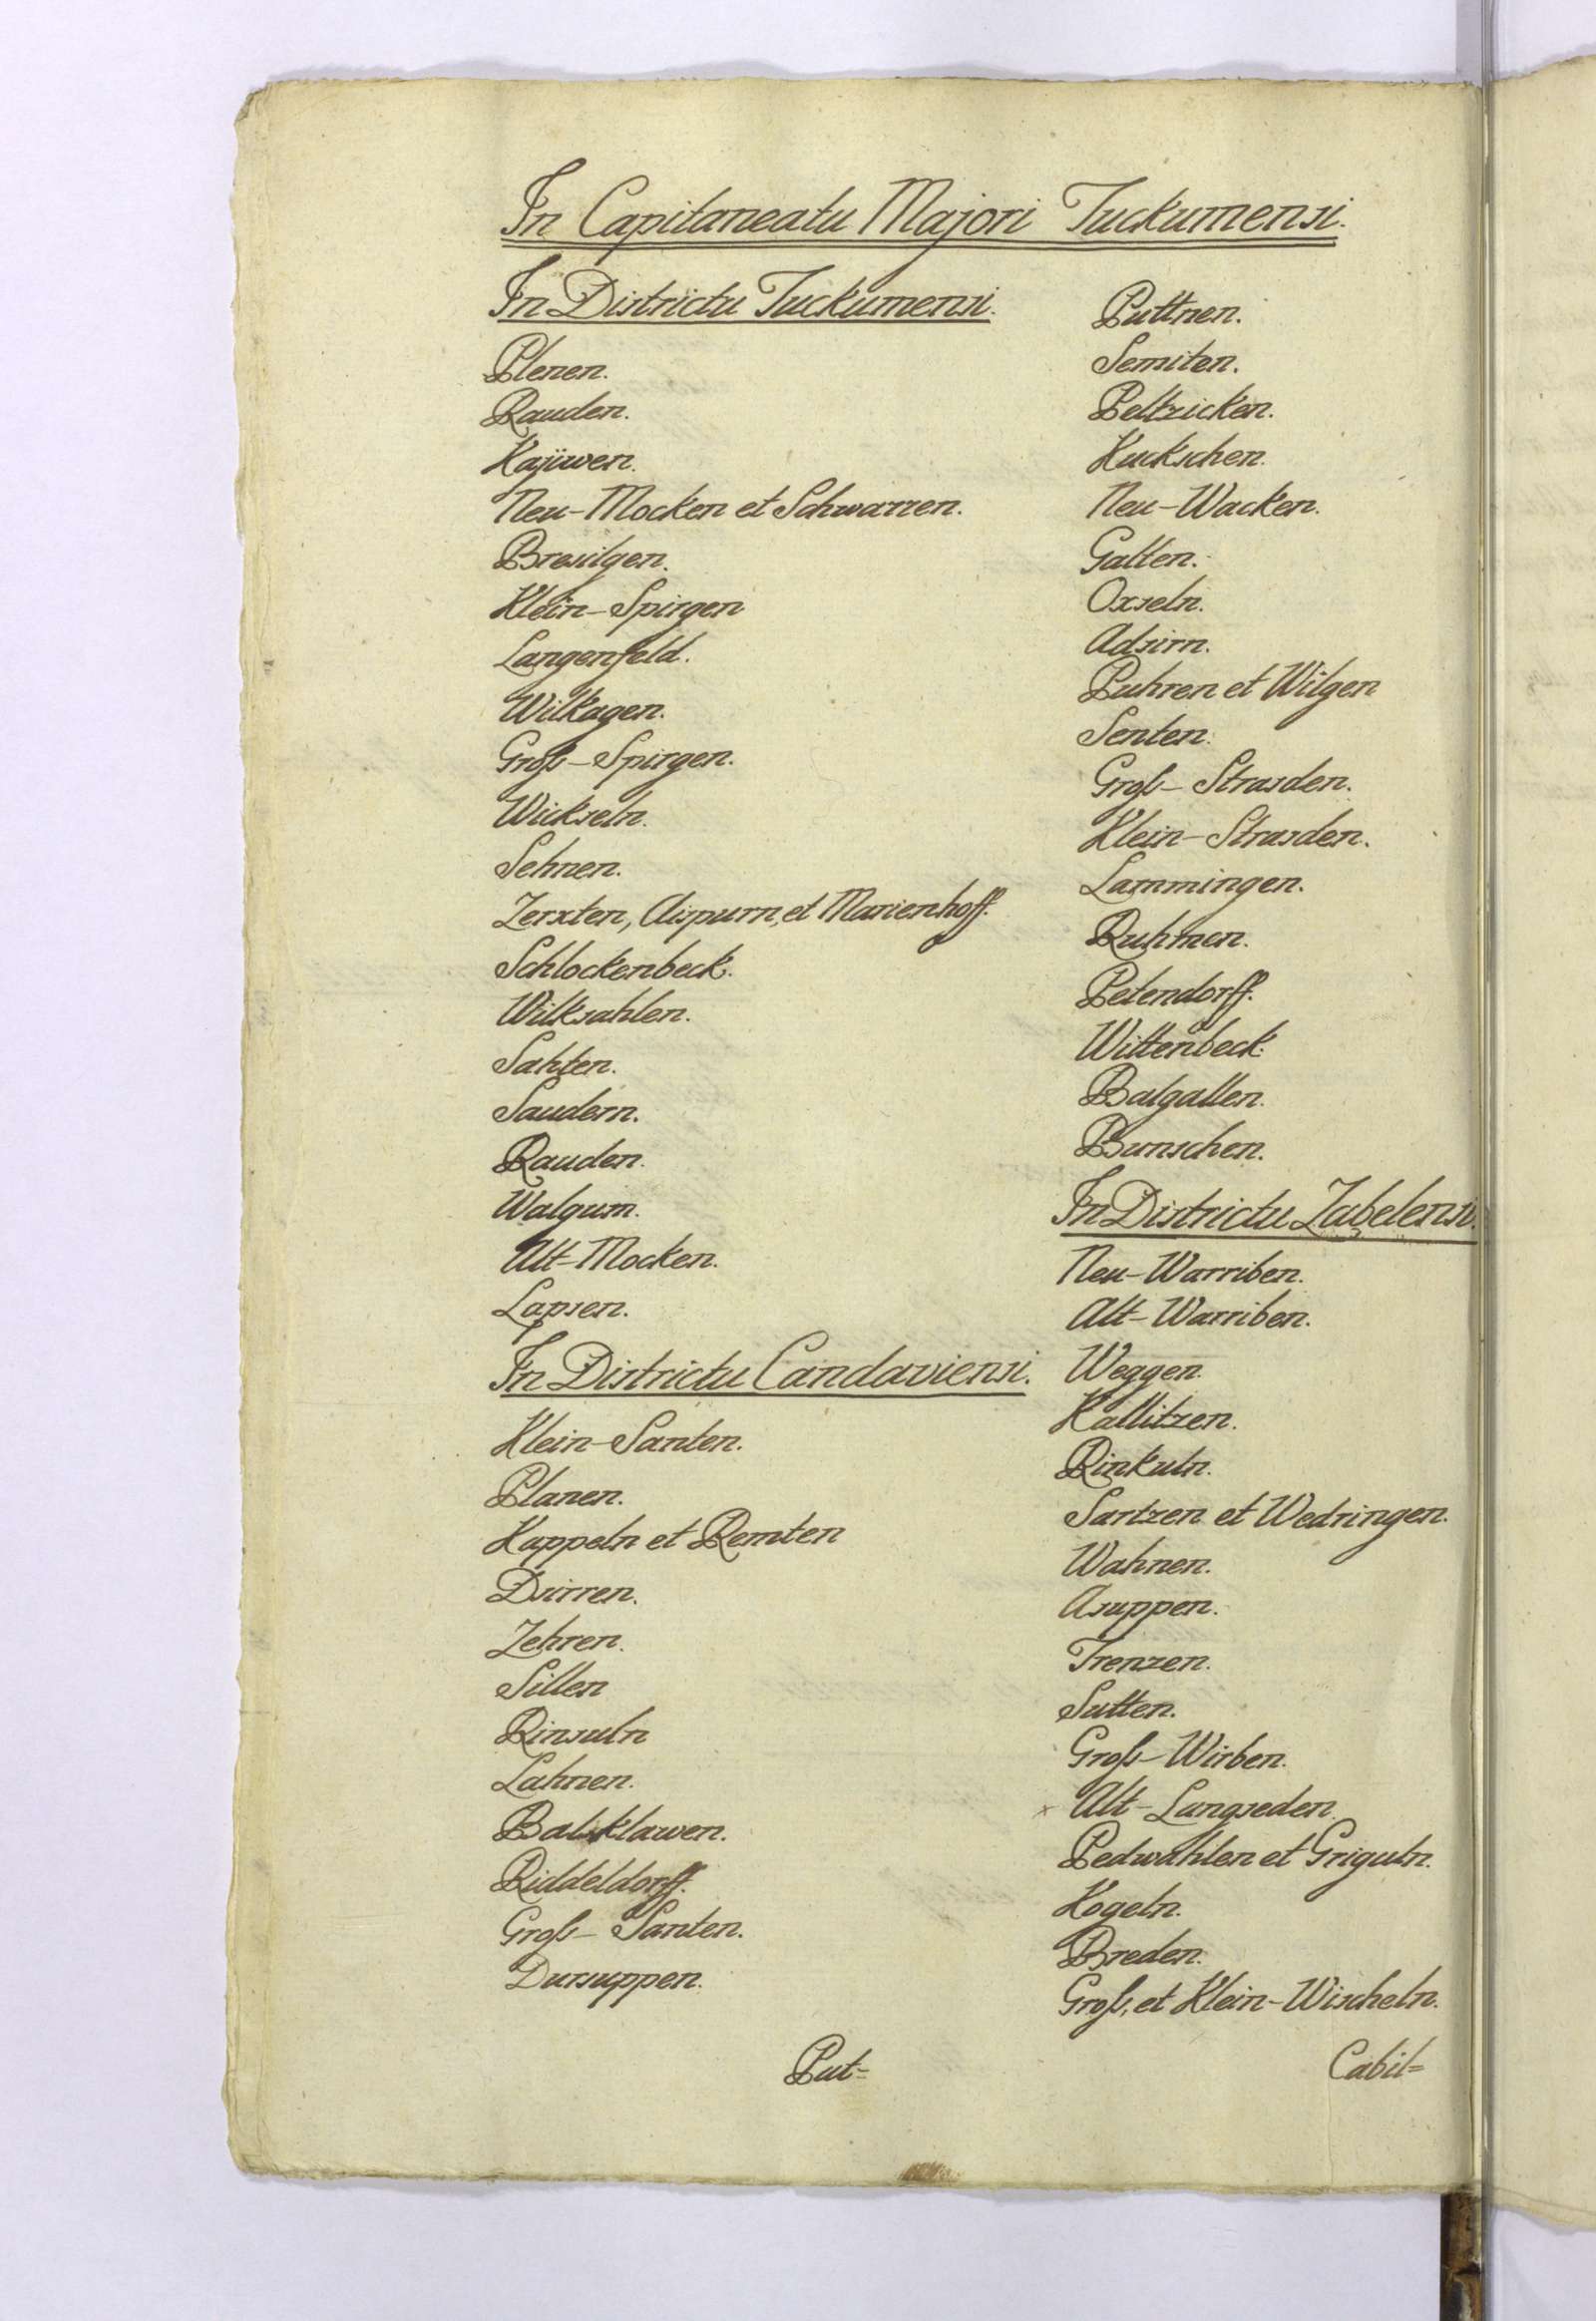 In Capitaneatu Majori Tuckumensi.
In Districtu Tuckumensi.
Plenen.
Rauden.
Kajüwen.
Neu-Mocken et Schwarren.
Bresilgen.
Klein-Spirgen
Langenfeld.
Wilkagen.
Groß-Spirgen.
Wickseln.
Sehnen.
Zerxten, Aispurn, et Marienhoff.
Schlockenbeck.
Wilksahlen.
Sahten.
Saudern.
Rauden.
Walgum.
Alt-Mocken.
Lapsen.
In Districtu Candaviensi.
Klein-Santen.
Planen.
Kappeln et Remten
Dsirren.
Zehren.
Sillen
Rinsuln
Lahnen.
Balsklawen.
Riddeldorff.
Groß-Santen.
Dursuppen.
Put=
Puttnen.
Semiten.
Peltzicken.
Kuckschen.
Neu-Wacken.
Galten.
Oxseln.
Adsirn.
Puhren et Wilgen
Senten.
Groß-Strasden.
Klein-Strasden.
Lammingen.
Ruhmen.
Petendorff.
Wittenbeck.
Balgallen.
Bunschen.
In Districtu Zabelensi.
Neu-Warriben.
Alt-Warriben.
Weggen.
Kallitzen.
Rinkuln.
Sartzen et Wedringen.
Wahnen.
Asuppen.
Trenzen.
Sutten.
Groß-Wirben.
× Alt-Langseden.
Pedwahlen et Griguln.
Kogeln.
Breden.
Groß, et Klein-Wischeln.
Cabil=